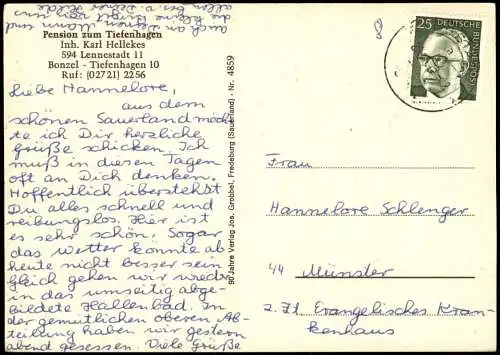 Pension zum Tiefenhagen
Inh. Karl Hellekes
594 Lennestadt 11
Bonzel - Tiefenhagen 10
Ruf: (0 27 21) 22 56
Liebe Hannelore,
aus dem
schönen Sauerland möch-
te ich Dir herzliche
Grüße schicken. Ich
muß in diesen Tagen
oft an Dich denken.
Hoffentlich überstehst
Du alles schnell und
reibungslos. Hier ist
es sehr schön. Sogar
das Wetter könnte ab
heute nicht besser sein
Gleich gehen wir wieder
in das umseitig abge-
bildete Hallenbad. In
der gemütlichen oberen Ab-
teilung haben wir gestern
abend gesessen. Viele Grüße
auch an Deinen Mann und
die kleine
allem
90 Jahre Verlag Jos. Grobbel, Fredeburg (Sauerland) - Nr. 4859
25
DEUTSCHE
BUNDESPOST
Frau
Hannelore Schlenger
44 Münster
z. Zt. Evangelisches Kran-
kenhaus